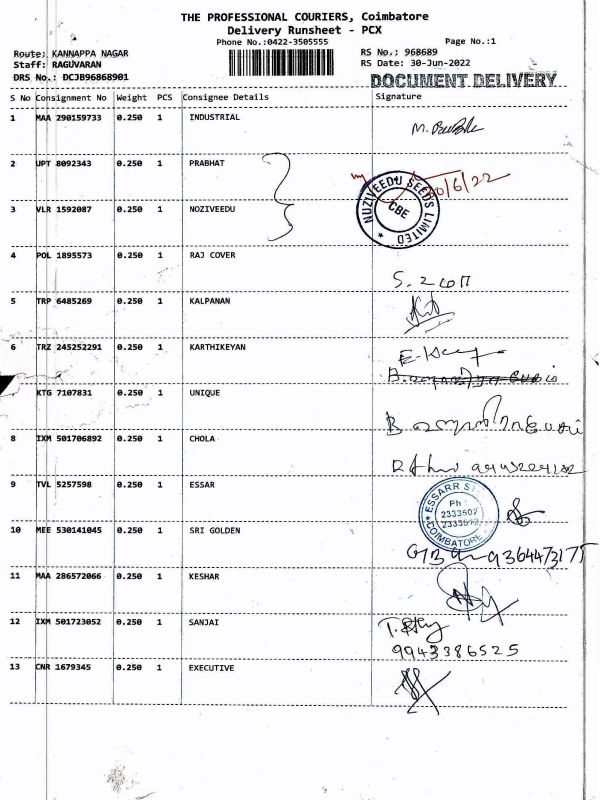 THE PROFESSIONAL COURIERS, Coimbatore
Delivery Runsheet - PCX
Phone No.:0422-3505555
Page No.:1
Route: KANNAPPA NAGAR
RS No.: 968689
Staff: RAGUVARAN
RS Date: 30-Jun-2022
DRS No.: DCJB96868901
DOCUMENT DELIVERY
S No Consignment No Weight PCS Consignee Details Signature
1 MAA 290159733 0.250 1 INDUSTRIAL
2 UPT 8092343 0.250 1 PRABHAT
30/6/22
NUZIVEEDU SEEDS LIMITED
CBE
3 VLR 1592087 0.250 1 NOZIVEEDU
4 POL 1895573 0.250 1 RAJ COVER
5 TRP 6485269 0.250 1 KALPANAN
6 TRZ 245252291 0.250 1 KARTHIKEYAN
KTG 7107831 0.250 1 UNIQUE
8 IXM 501706892 0.250 1 CHOLA
9 TVL 5257598 0.250 1 ESSAR
ESSARR
Ph :
2333507
2333512
COIMBATORE
10 MEE 530141045 0.250 1 SRI GOLDEN
11 MAA 286572066 0.250 1 KESHAR
12 IXM 501723052 0.250 1 SANJAI
9943386525
13 CNR 1679345 0.250 1 EXECUTIVE